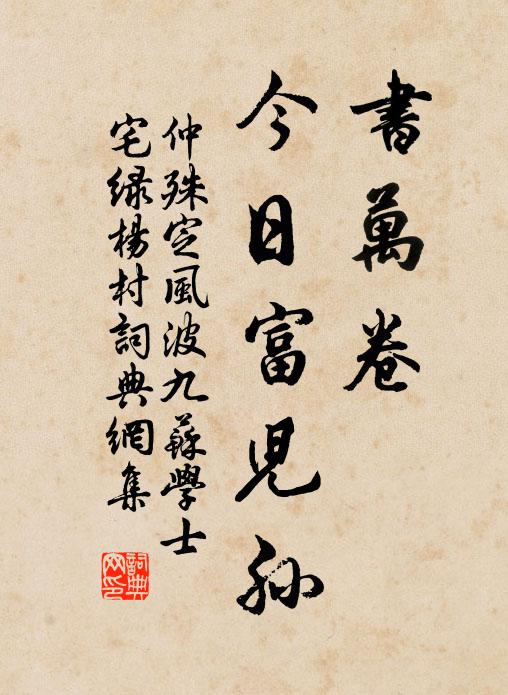 書萬卷
今日富兒孫
仲殊定風波九蘇學士
宅綠楊村詞典網集
詞典
网印